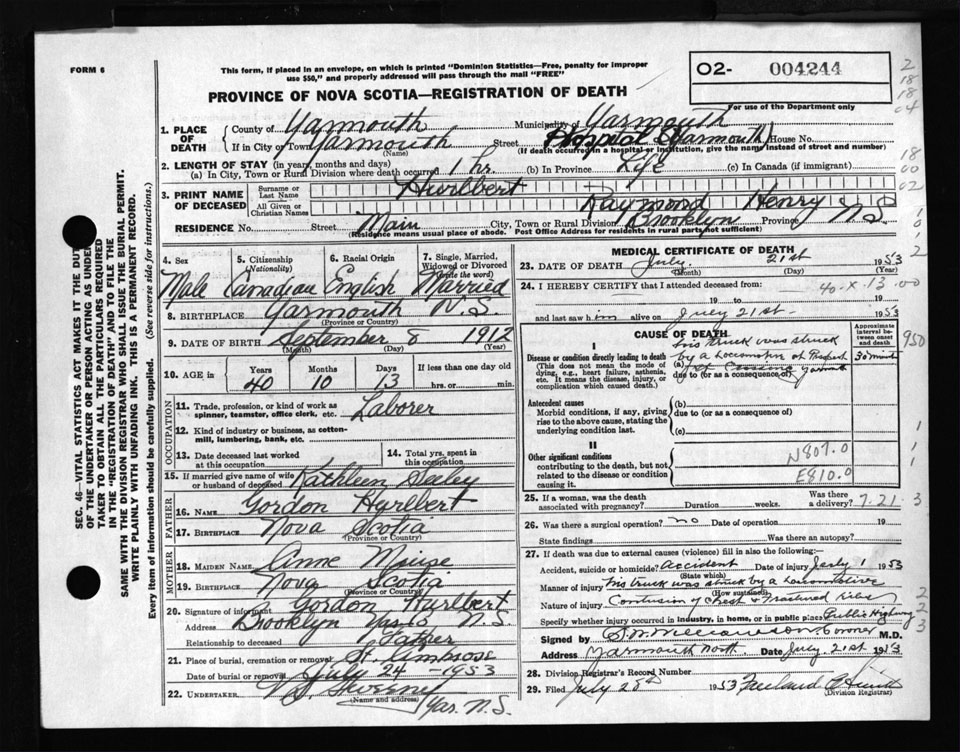 FORM 6
This form, if placed in an envelope, on which is printed "Dominion Statistics—Free, penalty for improper
use $50," and properly addressed will pass through the mail "FREE"
PROVINCE OF NOVA SCOTIA—REGISTRATION OF DEATH
O2- 004244
For use of the Department only
2
18
18
04
18
00
02
1
0
1
2
1. PLACE OF DEATH
County of Yarmouth Municipality of Yarmouth
If in City or Town Yarmouth Street Hospital (Yarmouth) House No.
(Name) (If death occurred in a hospital or institution, give the name instead of street and number)
2. LENGTH OF STAY (in years, months and days)
(a) In City, Town or Rural Division where death occurred 1 hr. (b) In Province Life (c) In Canada (if immigrant)
3. PRINT NAME OF DECEASED
Surname or Last Name Hurlbert
All Given or Christian Names Raymond Henry
RESIDENCE No. Street Main City, Town or Rural Division Brooklyn Province N.S.
(Residence means usual place of abode. Post Office Address for residents in rural parts not sufficient)
SEC. 46—VITAL STATISTICS ACT MAKES IT THE DUTY
OF THE UNDERTAKER OR PERSON ACTING AS UNDER-
TAKER TO OBTAIN ALL THE PARTICULARS REQUIRED
IN THE "REGISTRATION OF DEATH" AND TO FILE THE
SAME WITH THE DIVISION REGISTRAR WHO SHALL ISSUE THE BURIAL PERMIT.
WRITE PLAINLY WITH UNFADING INK. THIS IS A PERMANENT RECORD.
Every item of information should be carefully supplied. (See reverse side for instructions.)
4. Sex
Male
5. Citizenship (Nationality)
Canadian
6. Racial Origin
English
7. Single, Married, Widowed or Divorced (Write the word)
Married
8. BIRTHPLACE Yarmouth N.S.
(Province or Country)
9. DATE OF BIRTH September 8 1912
(Month) (Day) (Year)
10. AGE in Years 40 Months 10 Days 13 If less than one day old
hrs. or min.
OCCUPATION
11. Trade, profession, or kind of work as spinner, teamster, office clerk, etc. Laborer
12. Kind of industry or business, as cotton-mill, lumbering, bank, etc.
13. Date deceased last worked at this occupation
14. Total yrs. spent in this occupation
15. If married give name of wife or husband of deceased Kathleen Seeley
FATHER
16. Name Gordon Hurlbert
17. Birthplace Nova Scotia
(Province or Country)
MOTHER
18. MAIDEN NAME Anne Muise
19. BIRTHPLACE Nova Scotia
(Province or Country)
20. Signature of informant Gordon Hurlbert
Address Brooklyn N.S.
Relationship to deceased Father
21. Place of burial, cremation or removal St. Ambrose
Date of burial or removal July 24 - 1953
22. UNDERTAKER Sweeny
(Name and address)
Yar. N.S.
MEDICAL CERTIFICATE OF DEATH
23. DATE OF DEATH July 21st 1953
(Month) (Day) (Year)
24. I HEREBY CERTIFY that I attended deceased from:
40-X-13.00
19 to 19
and last saw him alive on July 21st 1953
CAUSE OF DEATH
Approximate interval between onset and death
I
Disease or condition directly leading to death
(This does not mean the mode of dying, e.g., heart failure, asthenia, etc. It means the disease, injury, or complication which caused death.)
his truck was struck
(a) by a Locomotive at Prospect 30 minutes
St Crossing Yarmouth
due to (or as a consequence of)
950
Antecedent causes
Morbid conditions, if any, giving rise to the above cause, stating the underlying condition last.
(b)
due to (or as a consequence of)
(c)
II
Other significant conditions
contributing to the death, but not related to the disease or condition causing it.
N807.0
E810.0
1
1
1
25. If a woman, was the death associated with pregnancy? Duration weeks. Was there a delivery?
7-21-3
26. Was there a surgical operation? no Date of operation 19
State findings Was there an autopsy?
27. If death was due to external causes (violence) fill in also the following:—
Accident, suicide or homicide? Accident Date of injury July 1953
(State which)
Manner of injury his truck was struck by a Locomotive
(How sustained)
Nature of injury Contusion of Chest & Fractured ribs
Specify whether injury occurred in industry, in home, or in public place Public Highway
2
2
3
Signed by Coroner M.D.
Address Yarmouth North Date July 21st 1953
28. Division Registrar's Record Number
29. Filed July 28th 1953 Freeland
(Division Registrar)